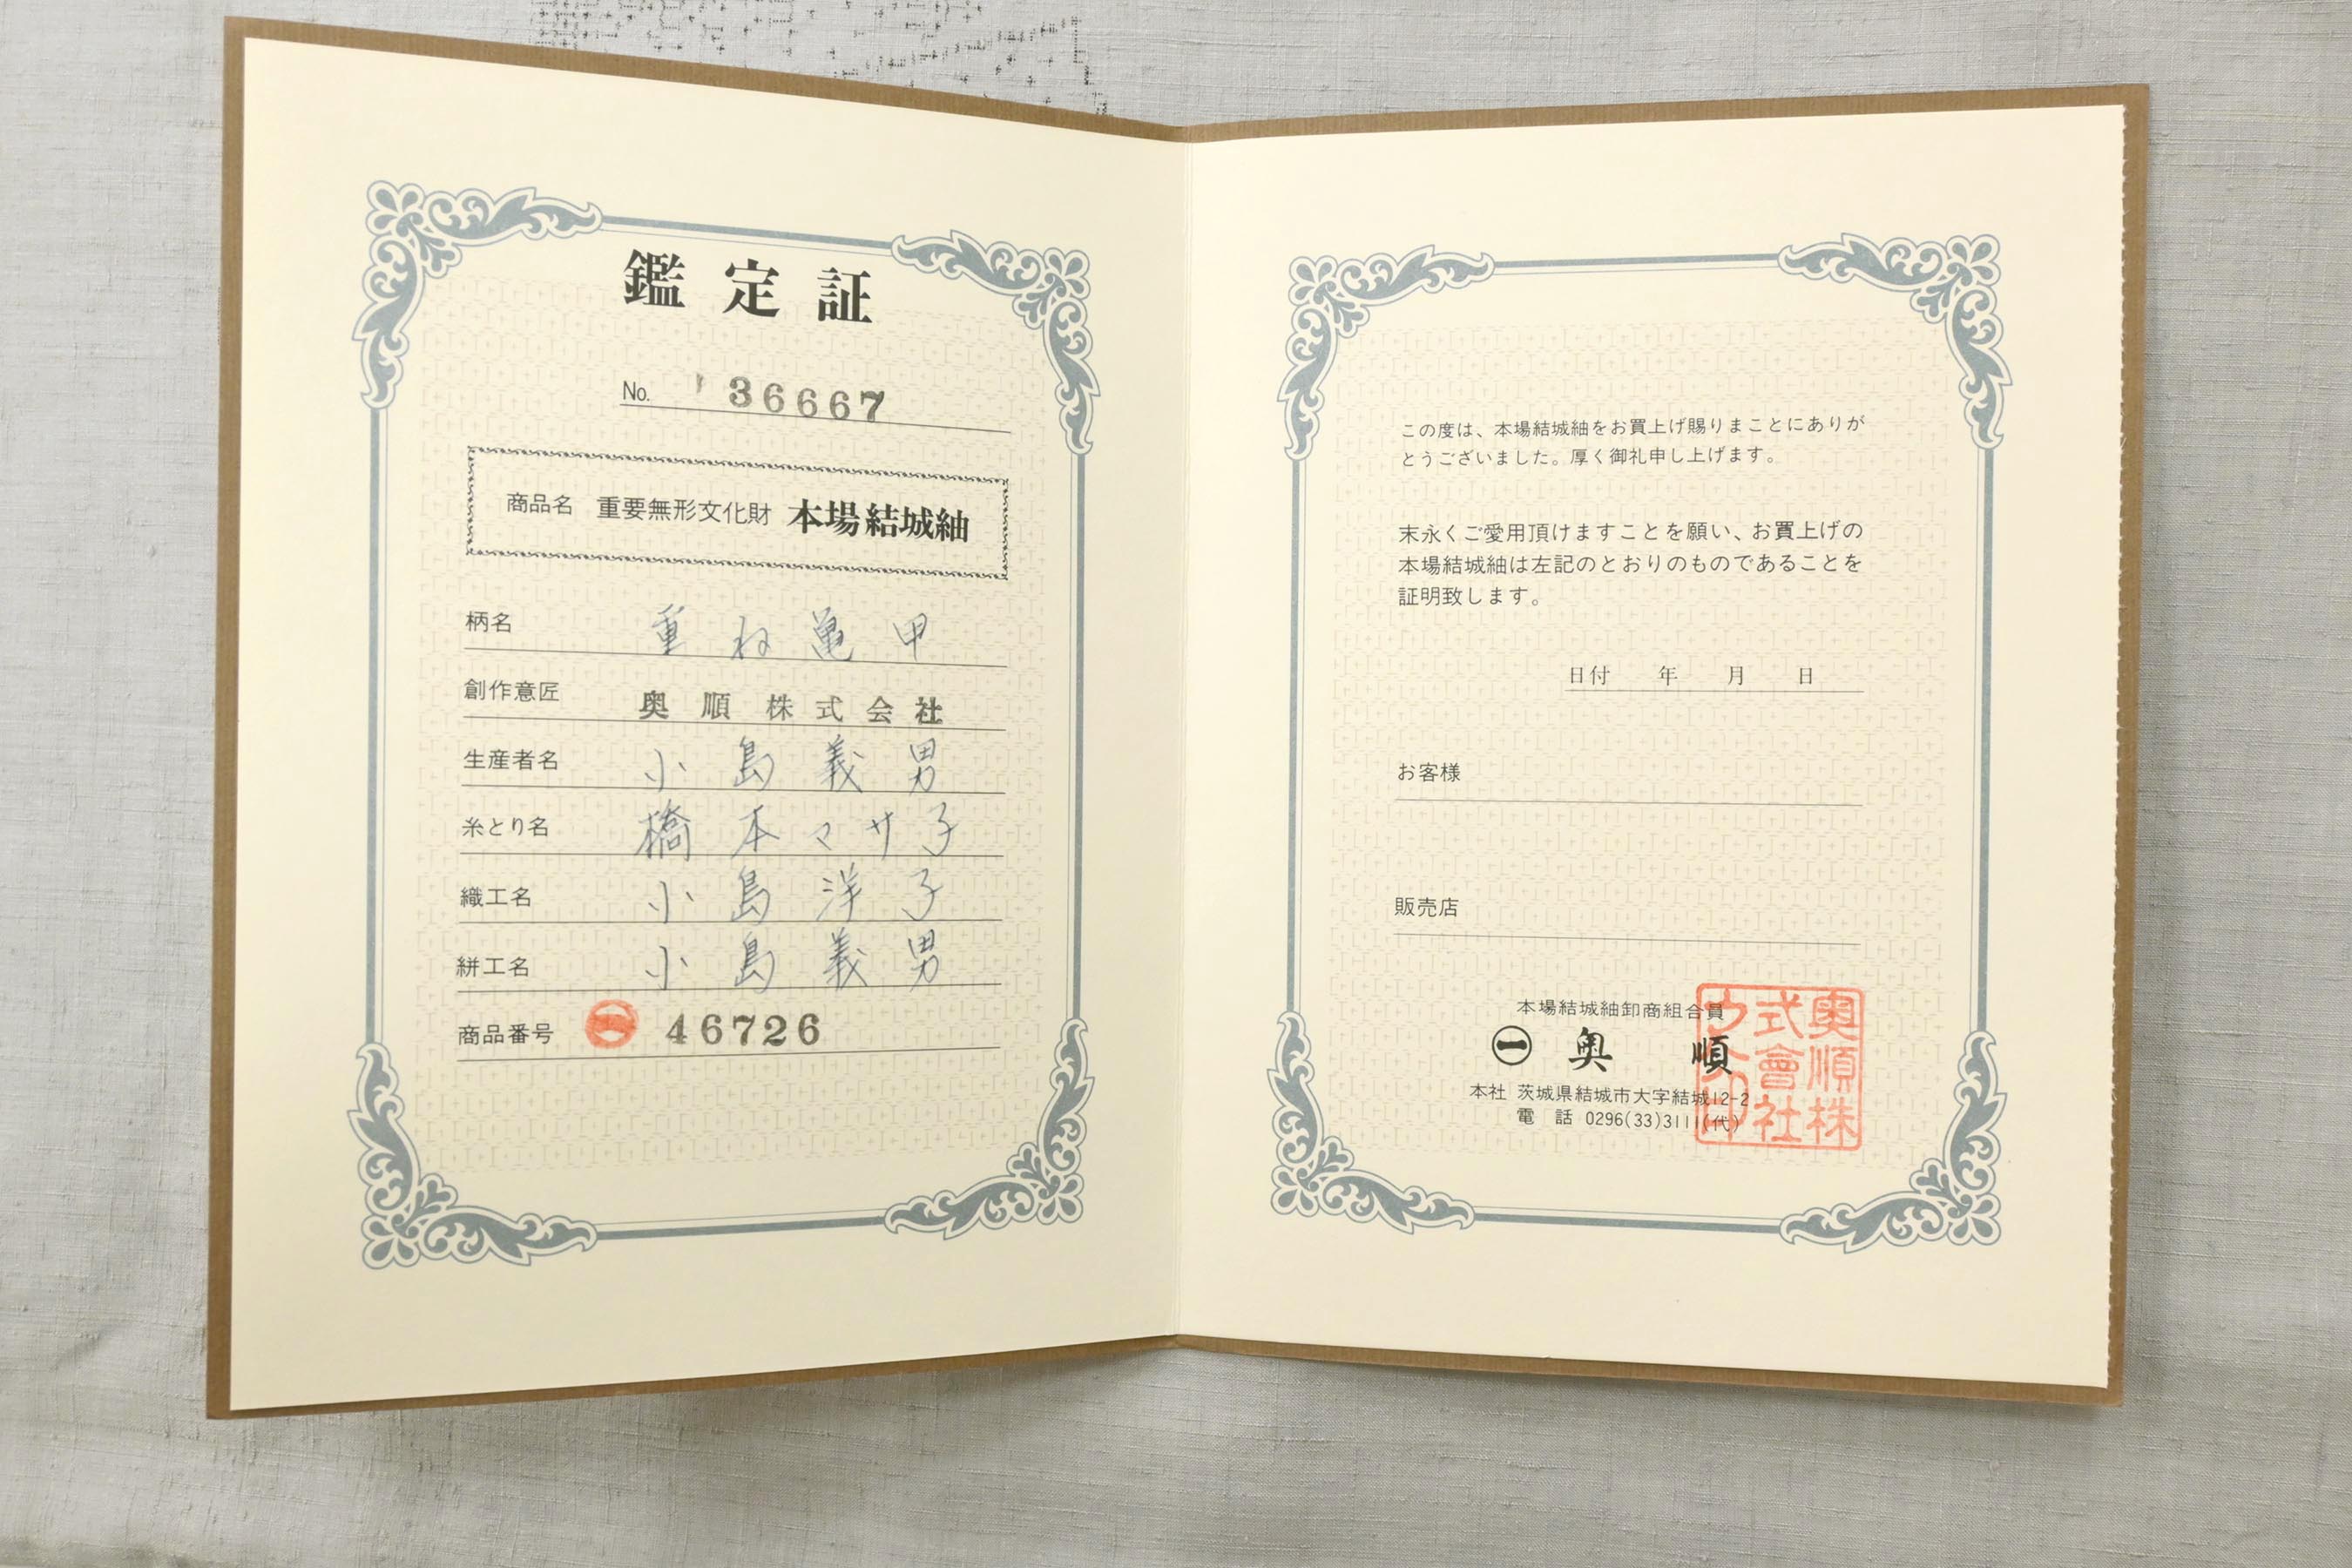 鑑定証
No. 36667
商品名 重要無形文化財 本場結城紬
柄名 重ね亀甲
創作意匠 奥順株式会社
生産者名 小島義男
糸とり名 橋本マサ子
織工名 小島洋子
絣工名 小島義男
商品番号 ㊀ 46726
この度は、本場結城紬をお買上げ賜りまことにありが
とうございました。厚く御礼申し上げます。
末永くご愛用頂けますことを願い、お買上げの
本場結城紬は左記のとおりのものであることを
証明致します。
日付 年 月 日
お客様
販売店
本場結城紬卸商組合員
㊀ 奥順
本社 茨城県結城市大字結城12-2
電話 0296(33)3111(代)
奥順株
式會社